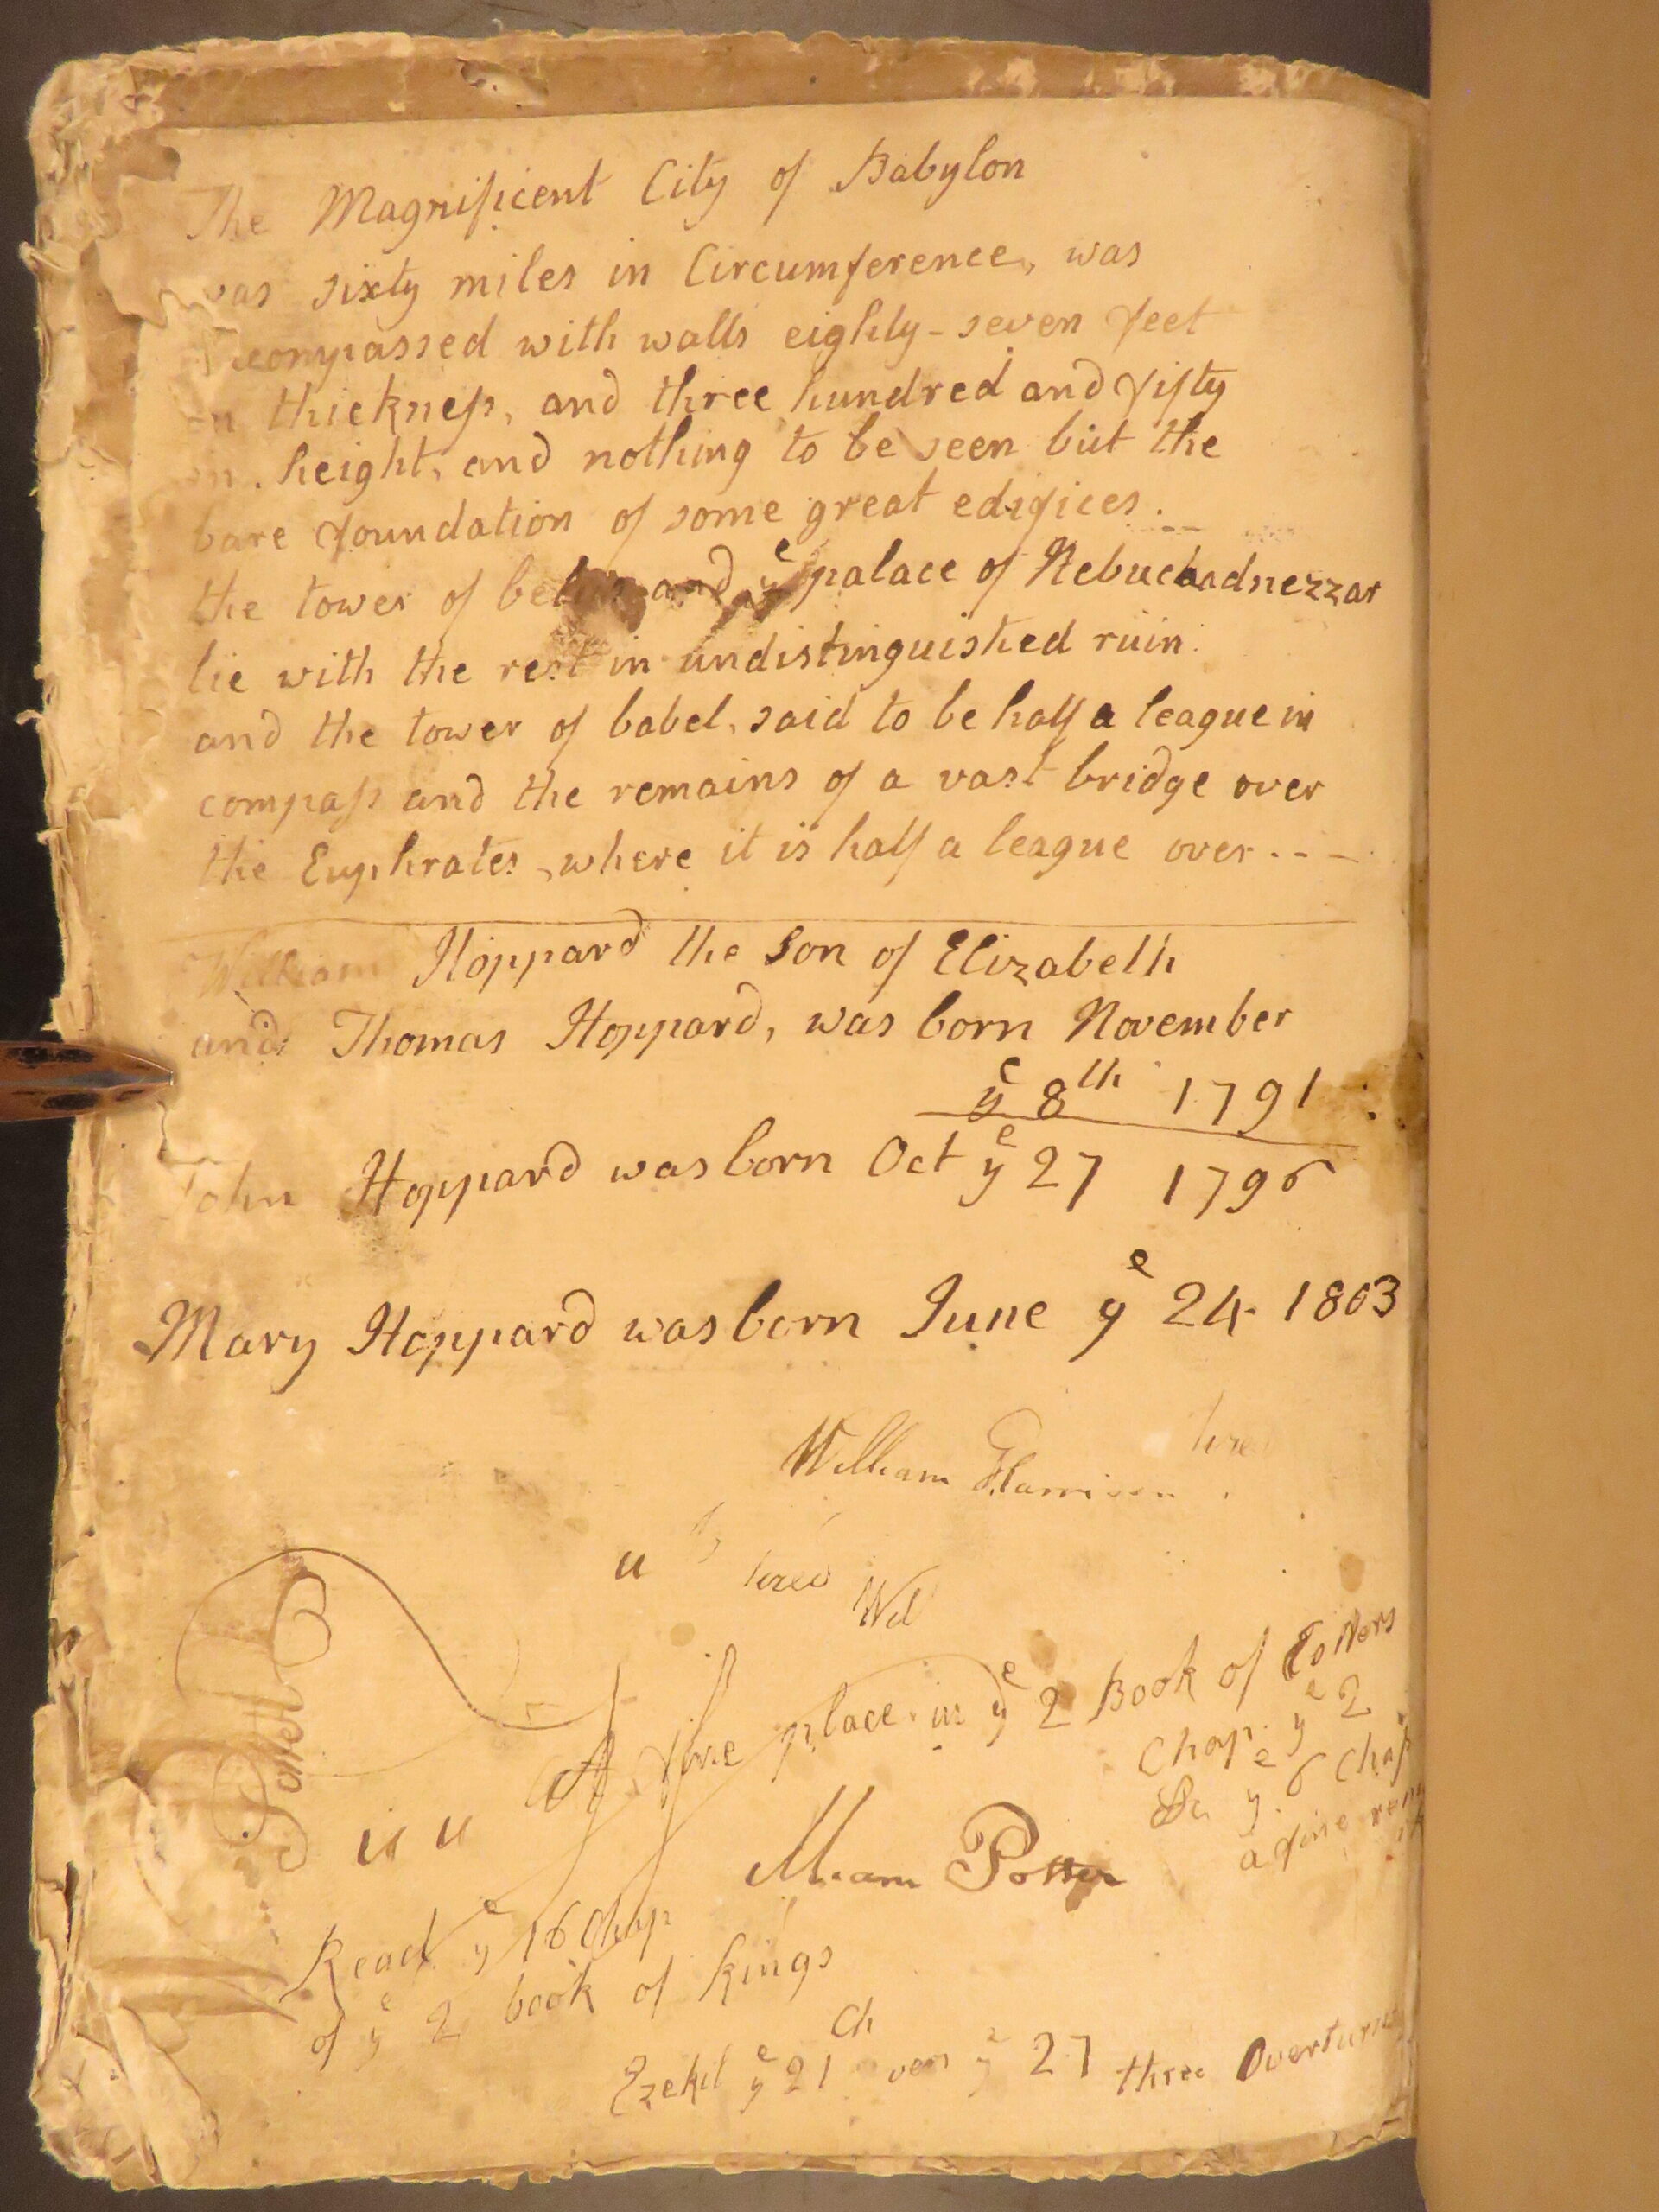 The Magnificent City of Babylon
was sixty miles in Circumference, was
encompassed with walls eighty-seven feet
in thickness, and three hundred and fifty
in height, and nothing to be seen but the
bare foundation of some great edifices.
the tower of belus and yᵉ palace of Nebuchadnezzar
lie with the rest in undistinguished ruin.
and the tower of babel, said to be half a league in
compass and the remains of a vast bridge over
the Euphrates, where it is half a league over---
William Hoppard the Son of Elizabeth
and Thomas Hoppard, was born November
yᵉ 8th 1791
John Hoppard was born Oct yᵉ 27 1796
Mary Hoppard was born June yᵉ 24 1803
William Harrison
u
Wil
A fine place in yᵉ 2 Book of
Chap yᵉ 2
yᵉ 6 Chap
a fine
u u
Potter
Read yᵉ 16 Chap
of yᵉ 2 book of Kings
Ezekil yᵉ 21 Ch ver yᵉ 27 three Overturns